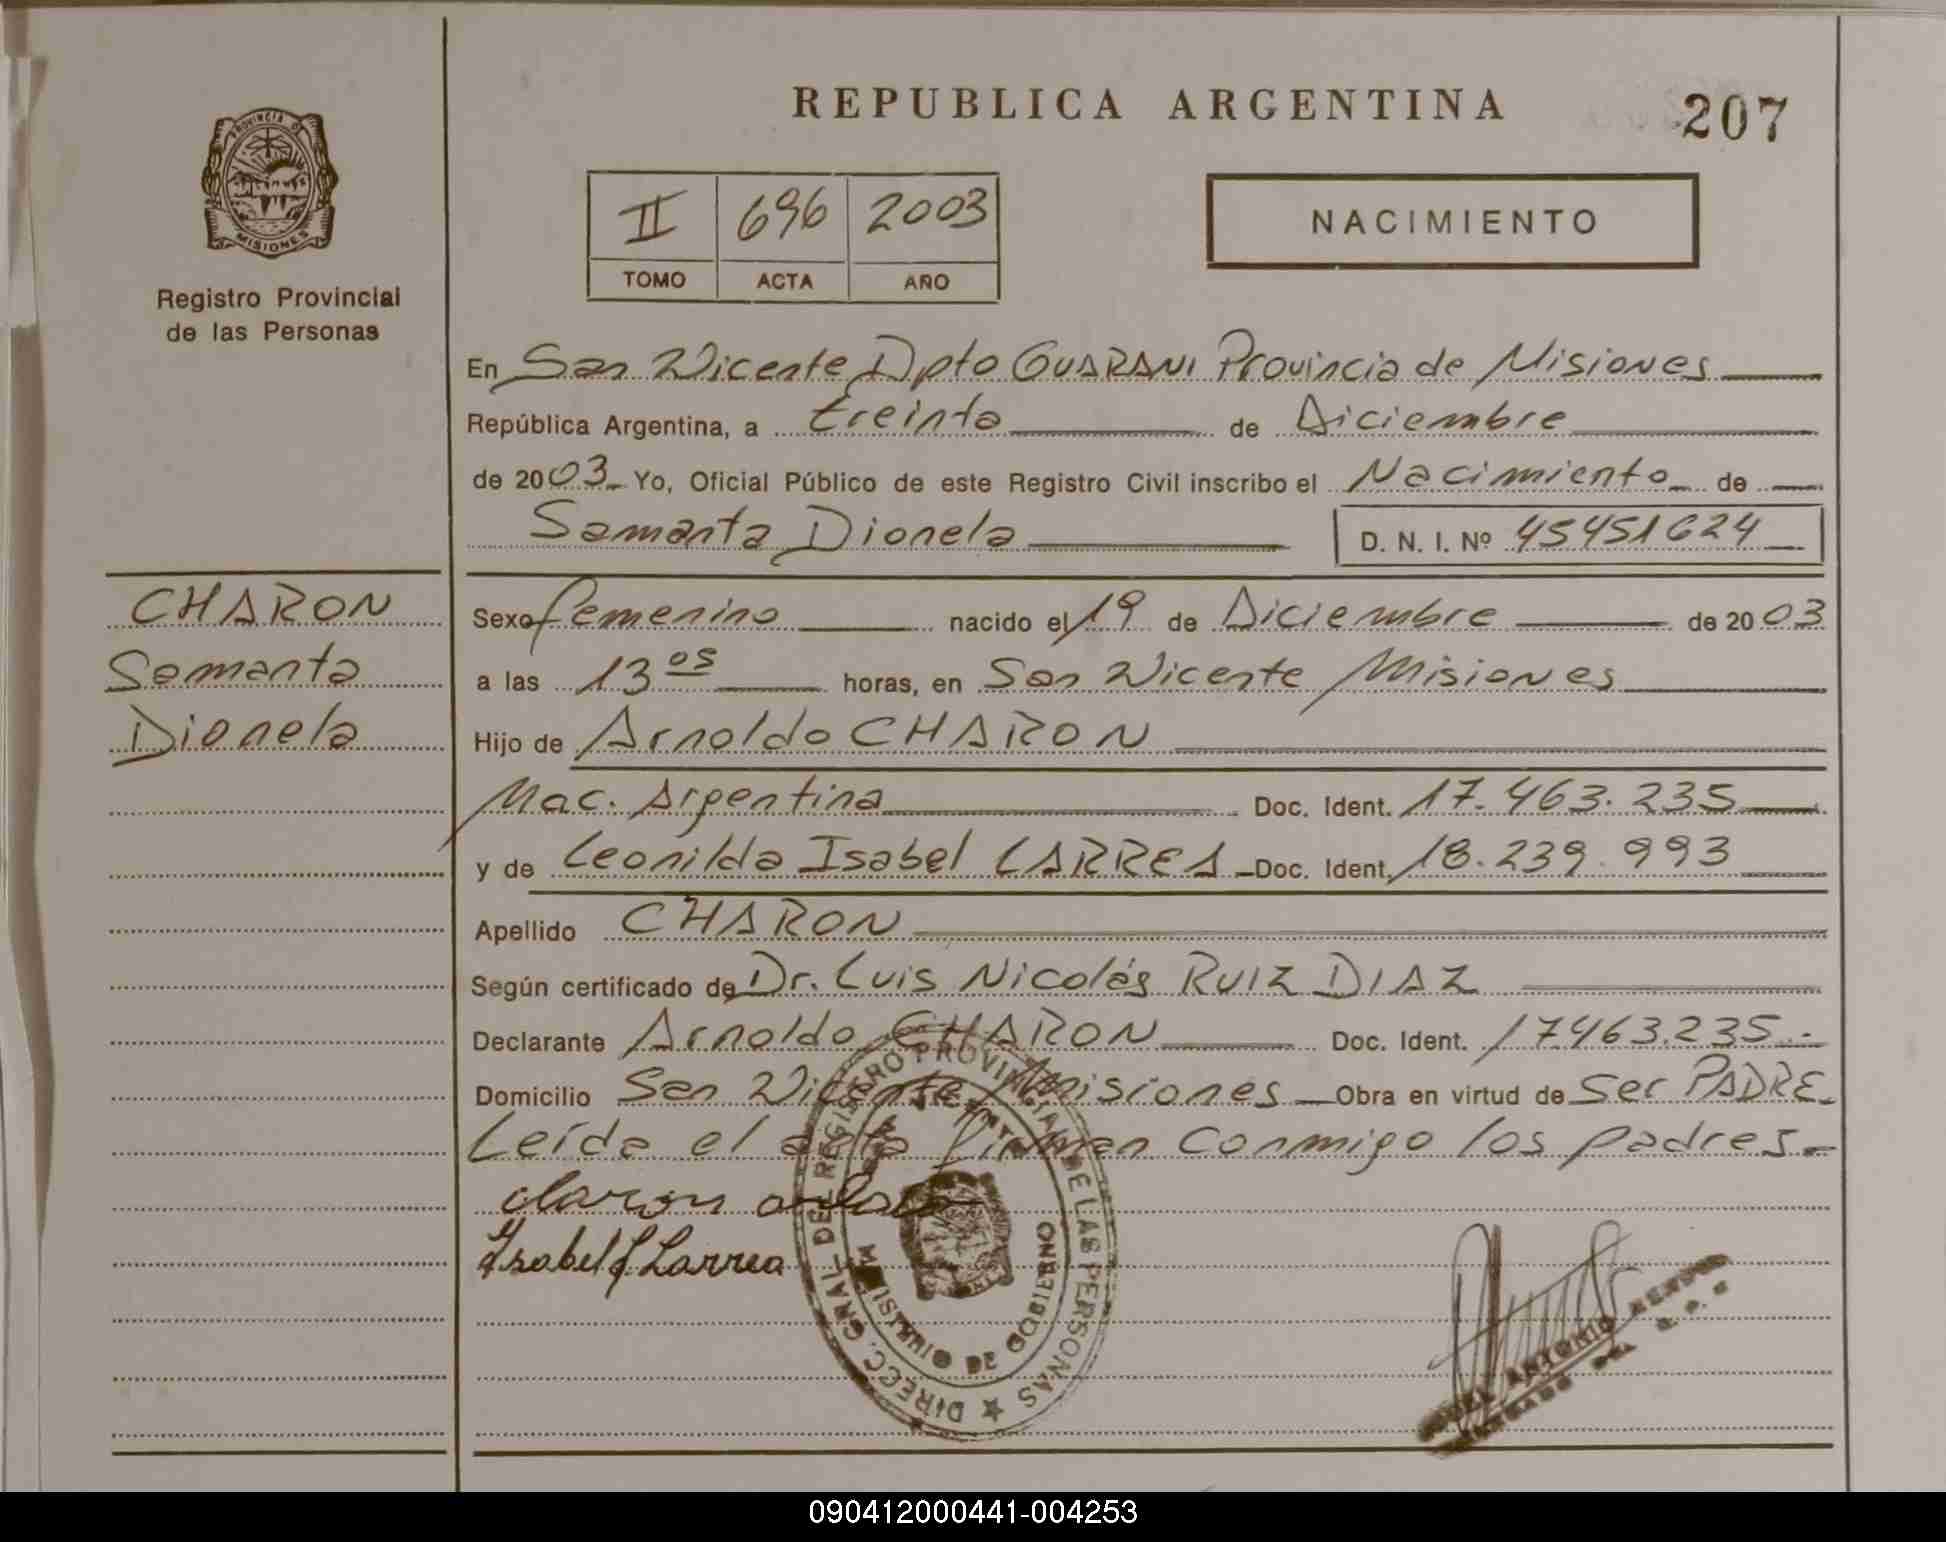 REPUBLICA ARGENTINA
207
PROVINCIA D
MISIONES
Registro Provincial
de las Personas
II 696 2003
TOMO ACTA AÑO
NACIMIENTO
En San Vicente Dpto GUARANI Provincia de Misiones
República Argentina, a treinta de Diciembre
de 2003 Yo, Oficial Público de este Registro Civil inscribo el Nacimiento de
Samanta Dionela D. N. I. Nº 45451624
CHARON
Samanta
Dionela
Sexo femenino nacido el 19 de Diciembre de 2003
a las 13 05 horas, en San Vicente Misiones
Hijo de Arnoldo CHARON
Nac. Argentina Doc. Ident. 17.463.235
y de Leonilda Isabel LARREA Doc. Ident. 18.239.993
Apellido CHARON
Según certificado de Dr. Luis Nicolás RUIZ DIAZ
Declarante Arnoldo CHARON Doc. Ident. 17463.235
Domicilio San Vicente Misiones Obra en virtud de Ser PADRE
Leída el acta firman conmigo los padres
Isabel L Larrea
DIRECC. GRAL. DEL REGISTRO PROVINCIAL DE LAS PERSONAS
MINISTERIO DE GOBIERNO
ANTONIO
090412000441-004253